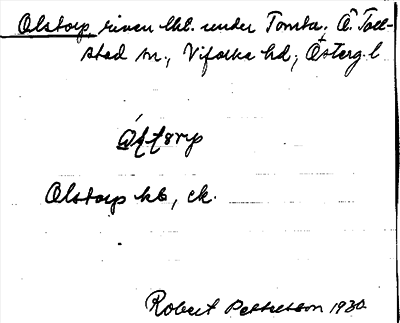 Olstorp, riven lht. under Tomta, Ö. Toll-
stad sn., Vifolka hd, Österg. l
Olstorp kb, ck.
Robert Pettersson 1930